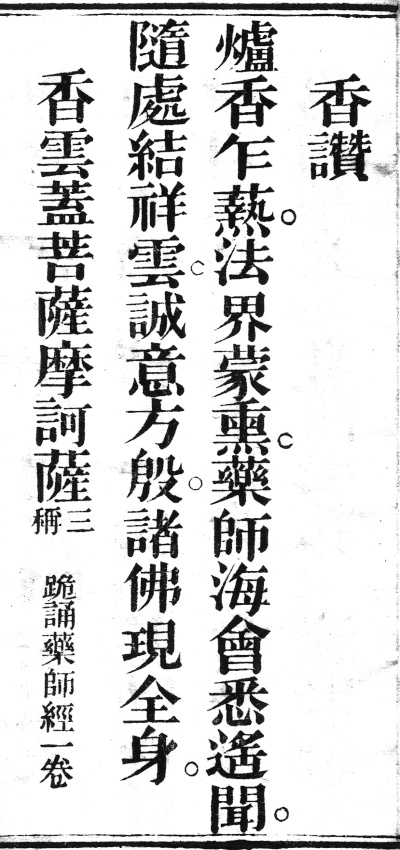 香讚
爐香乍爇。法界蒙熏。藥師海會悉遙聞。
隨處結祥雲。誠意方殷。諸佛現全身。
香雲蓋菩薩摩訶薩三稱 跪誦藥師經一卷